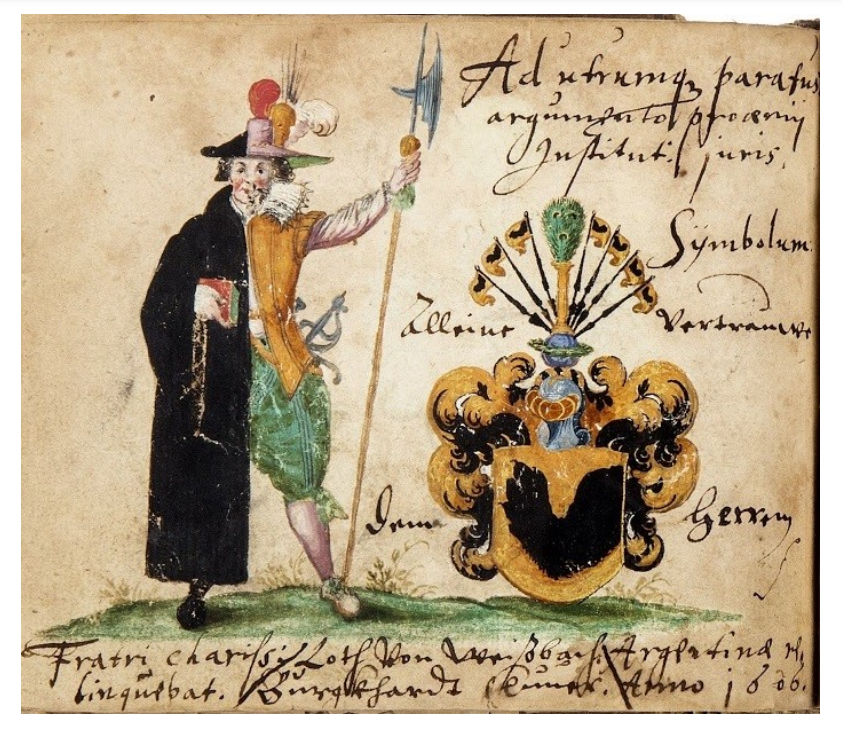 Ad utrumq paratus
argumento prooemij
Institut: juris.
Symbolum
Alleine Vertrauwe
dem Herren
Fratri charissi: Loth Von Weißbach Argentinæ re„
linquebat. Burgkhardt Anno 1606.